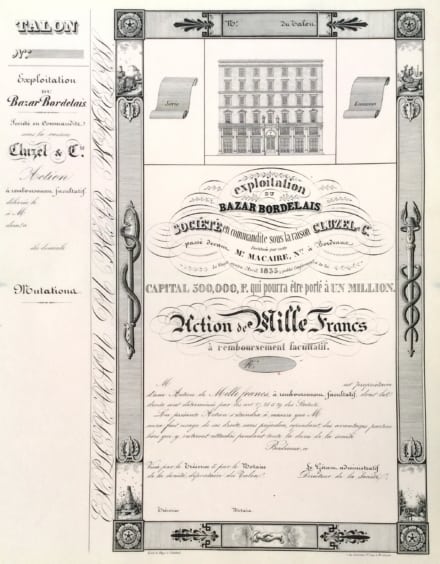 TALON
N.°
Exploitation
DU
Bazar Bordelais.
Société en Commandite
sous la raison
Cluzel & C.ie
Action
à remboursement facultatif
délivrée le
à M.
demeurant
dit domicile
Mutations
N.° du Talon.
Série
Emission
exploitation
DU
BAZAR BORDELAIS
SOCIÉTÉ en commandite sous la raison CLUZEL & C.
passé devant M.e MACAIRE, N.re à Bordeaux
1835
CAPITAL 500,000, F. qui pourra être porté à UN MILLION.
Action de Mille Francs
à remboursement facultatif.
N.
M est propriétaire
d'une Action de Mille francs, à remboursement facultatif, dont les
droits sont déterminés par les art. 17, 18 & 19 des Statuts.
La présente Action s'étendra à mesure que M
aura fait usage de ses droits sans préjudice, cependant des avantages
qui y restent attachés pendant toute la durée de la société
Bordeaux, le
Visé par le Trésorier & par le Notaire
de la société, dépositaire du Talon.
Le Gérant administratif
Directeur de la Société.
Trésorier
Notaire